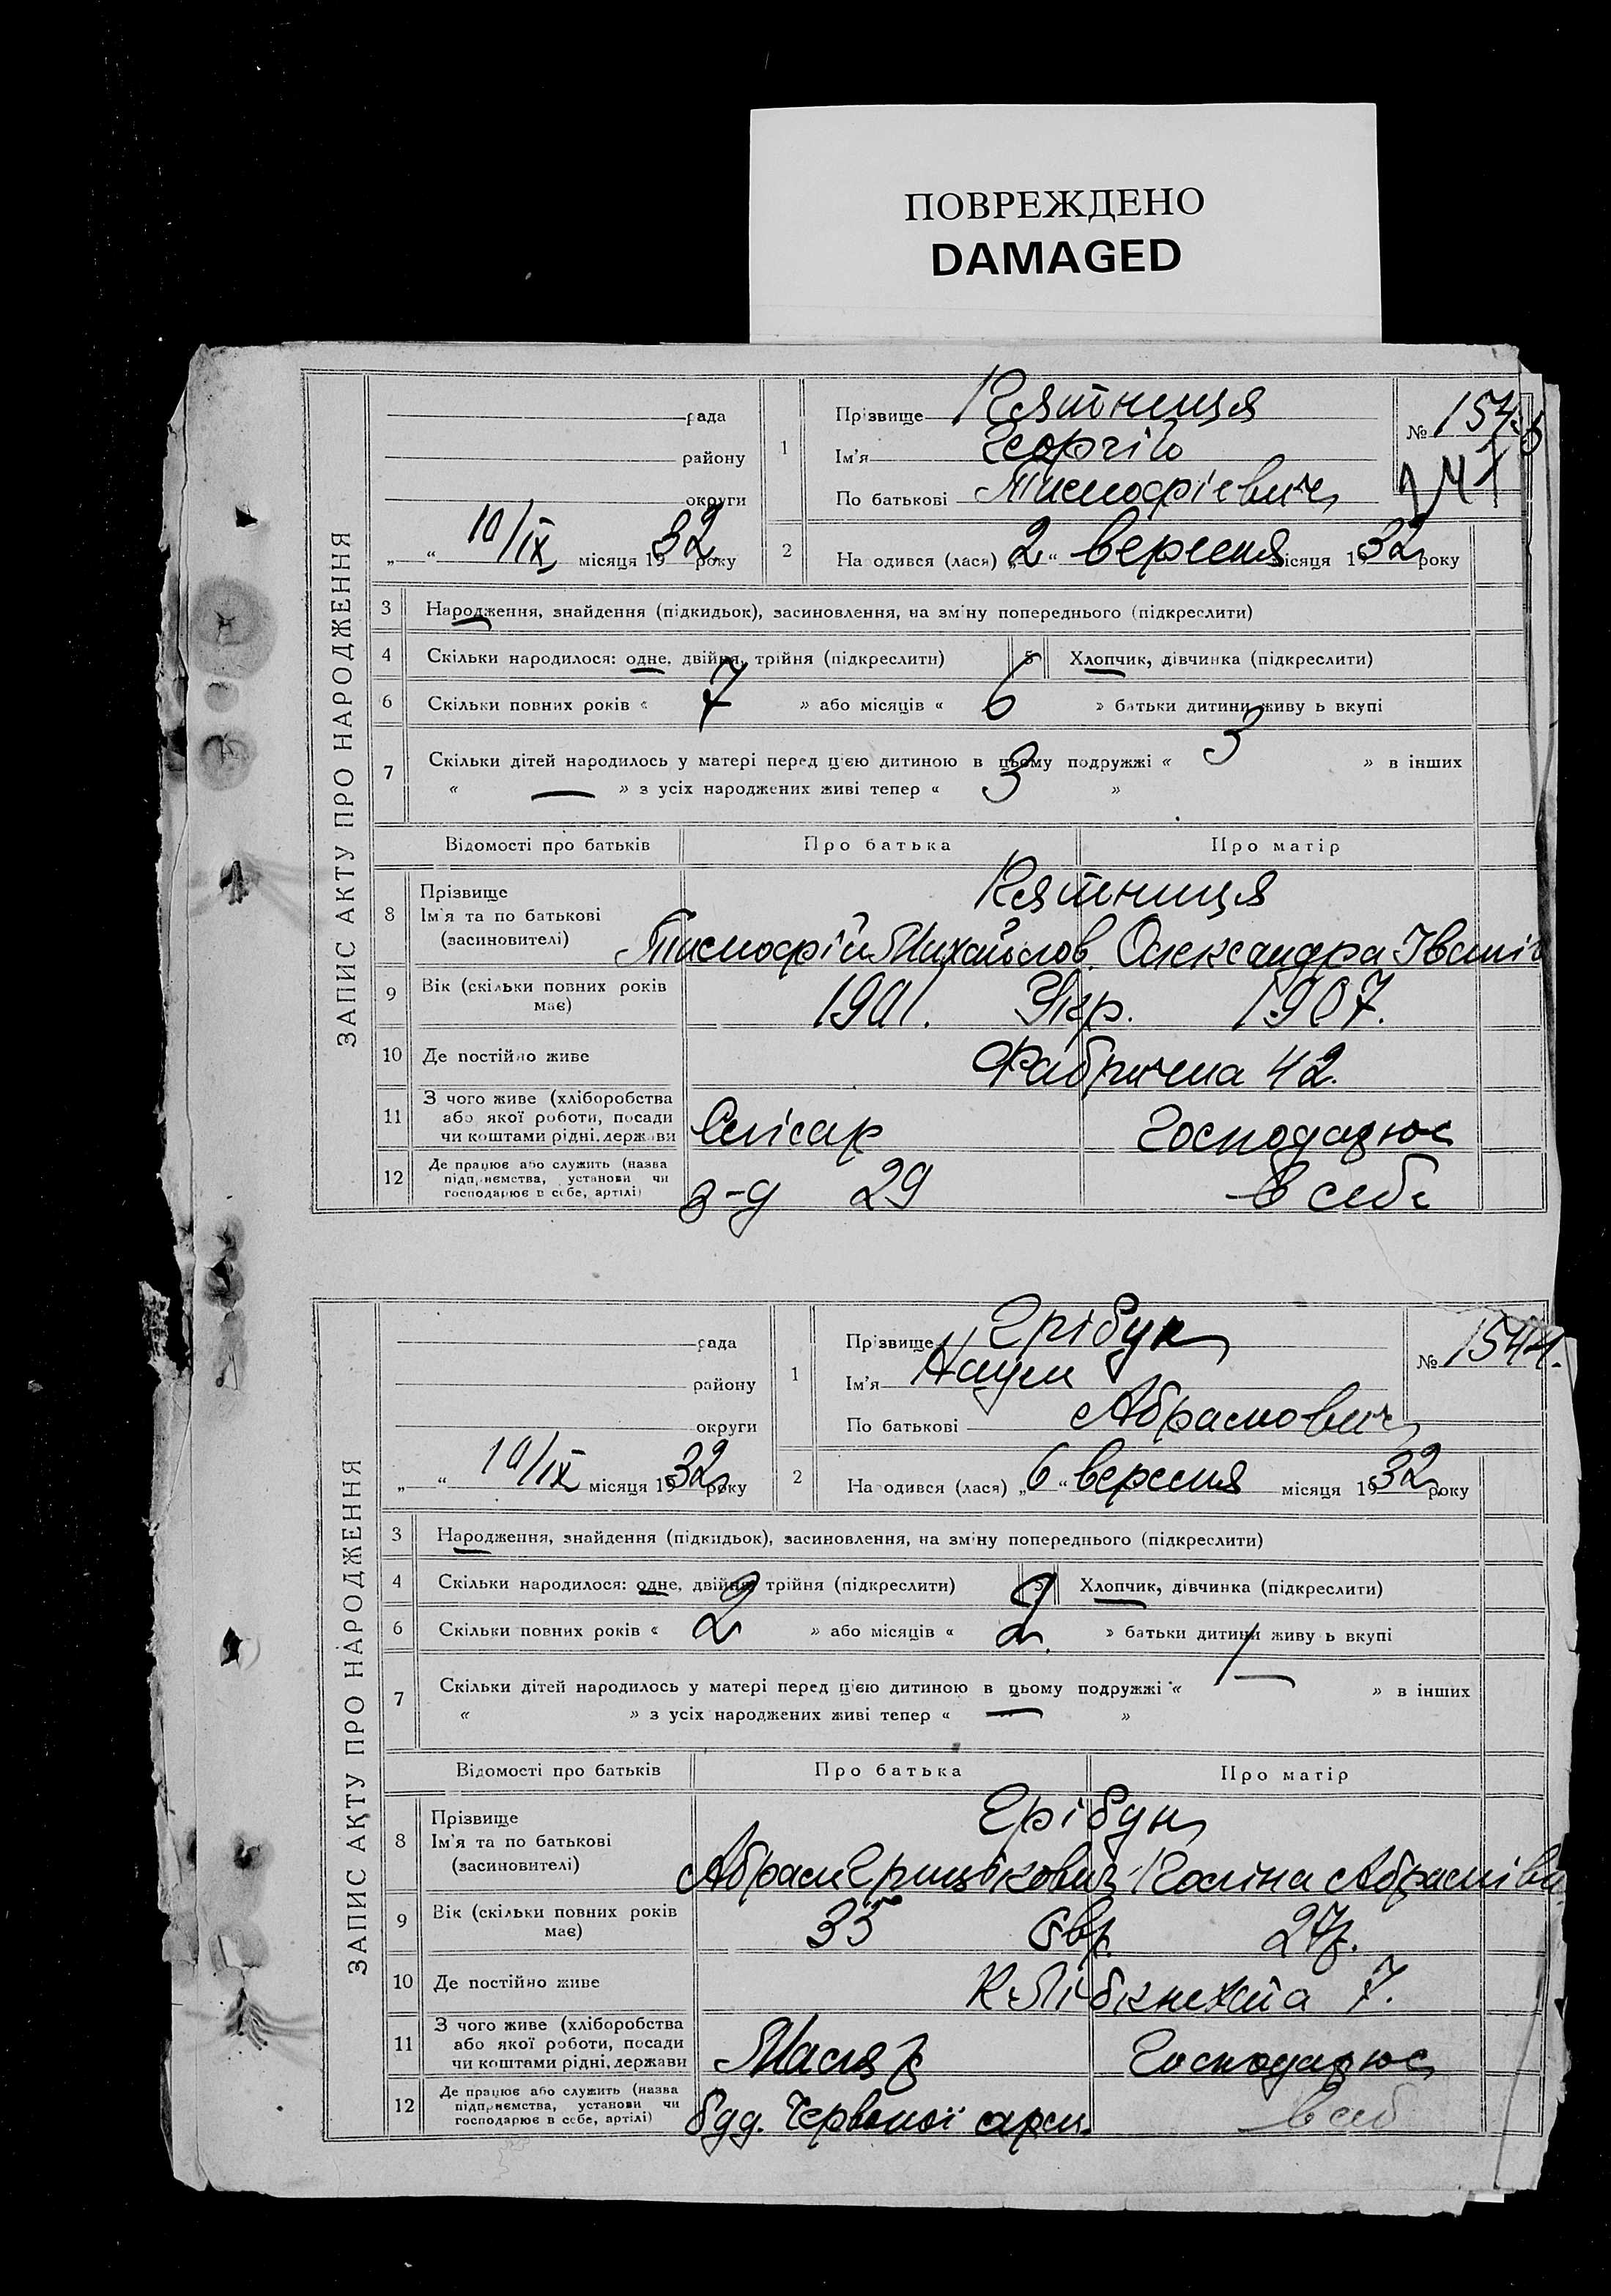 ПОВРЕЖДЕНО
DAMAGED
ЗАПИС АКТУ ПРО НАРОДЖЕННЯ
рада
району
округи
„ “ 10/IX місяця 1932 року
1
Прізвище
Ім'я Георгій
По батькові Тимофієвич
№ 154
2
На одився (лася) „2“ вересня місяця 1932 року
3 Народження, знайдення (підкидьок), засиновлення, на зміну попереднього (підкреслити)
4 Скільки народилося: одне, двійня, трійня (підкреслити) 5 Хлопчик, дівчинка (підкреслити)
6 Скільки повних років « 7 » або місяців « 6 » батьки дитини живу ь вкупі
7 Скільки дітей народилось у матері перед цією дитиною в цьому подружжі « 3 » в інших
« — » з усіх народжених живі тепер « 3 »
Відомості про батьків Про батька Про матір
8 Прізвище
Ім'я та по батькові
(засиновителі) Тимофій Михайлов. Олександра Іванів
9 Вік (скільки повних років має) 1901. Укр. 1907.
10 Де постійно живе Фабрична 42.
11 З чого живе (хліборобства
або якої роботи, посади
чи коштами рідні, держави Слісар Господарює
12 Де працює або служить (назва
підприємства, установи чи
господарює в себе, артілі) з-д 29 в себе
ЗАПИС АКТУ ПРО НАРОДЖЕННЯ
рада
району
округи
„ “ 10/IX місяця 1932 року
1
Прізвище Грібун
Ім'я Наум
По батькові Абрамович
№ 1544.
2
На одився (лася) „6“ вересня місяця 1932 року
3 Народження, знайдення (підкидьок), засиновлення, на зміну попереднього (підкреслити)
4 Скільки народилося: одне, двійня, трійня (підкреслити) 5 Хлопчик, дівчинка (підкреслити)
6 Скільки повних років « 2 » або місяців « 2 » батьки дитини живу ь вкупі
7 Скільки дітей народилось у матері перед цією дитиною в цьому подружжі « — » в інших
« » з усіх народжених живі тепер « — »
Відомості про батьків Про батька Про матір
8 Прізвище Грібун
Ім'я та по батькові
(засиновителі) Абрам Абрамівн
9 Вік (скільки повних років має) 35 Євр. 27р.
10 Де постійно живе К. Лібкнехта 7.
11 З чого живе (хліборобства
або якої роботи, посади
чи коштами рідні, держави Маляр Господарює
12 Де працює або служить (назва
підприємства, установи чи
господарює в себе, артілі) буд. Червоної арм. в себ